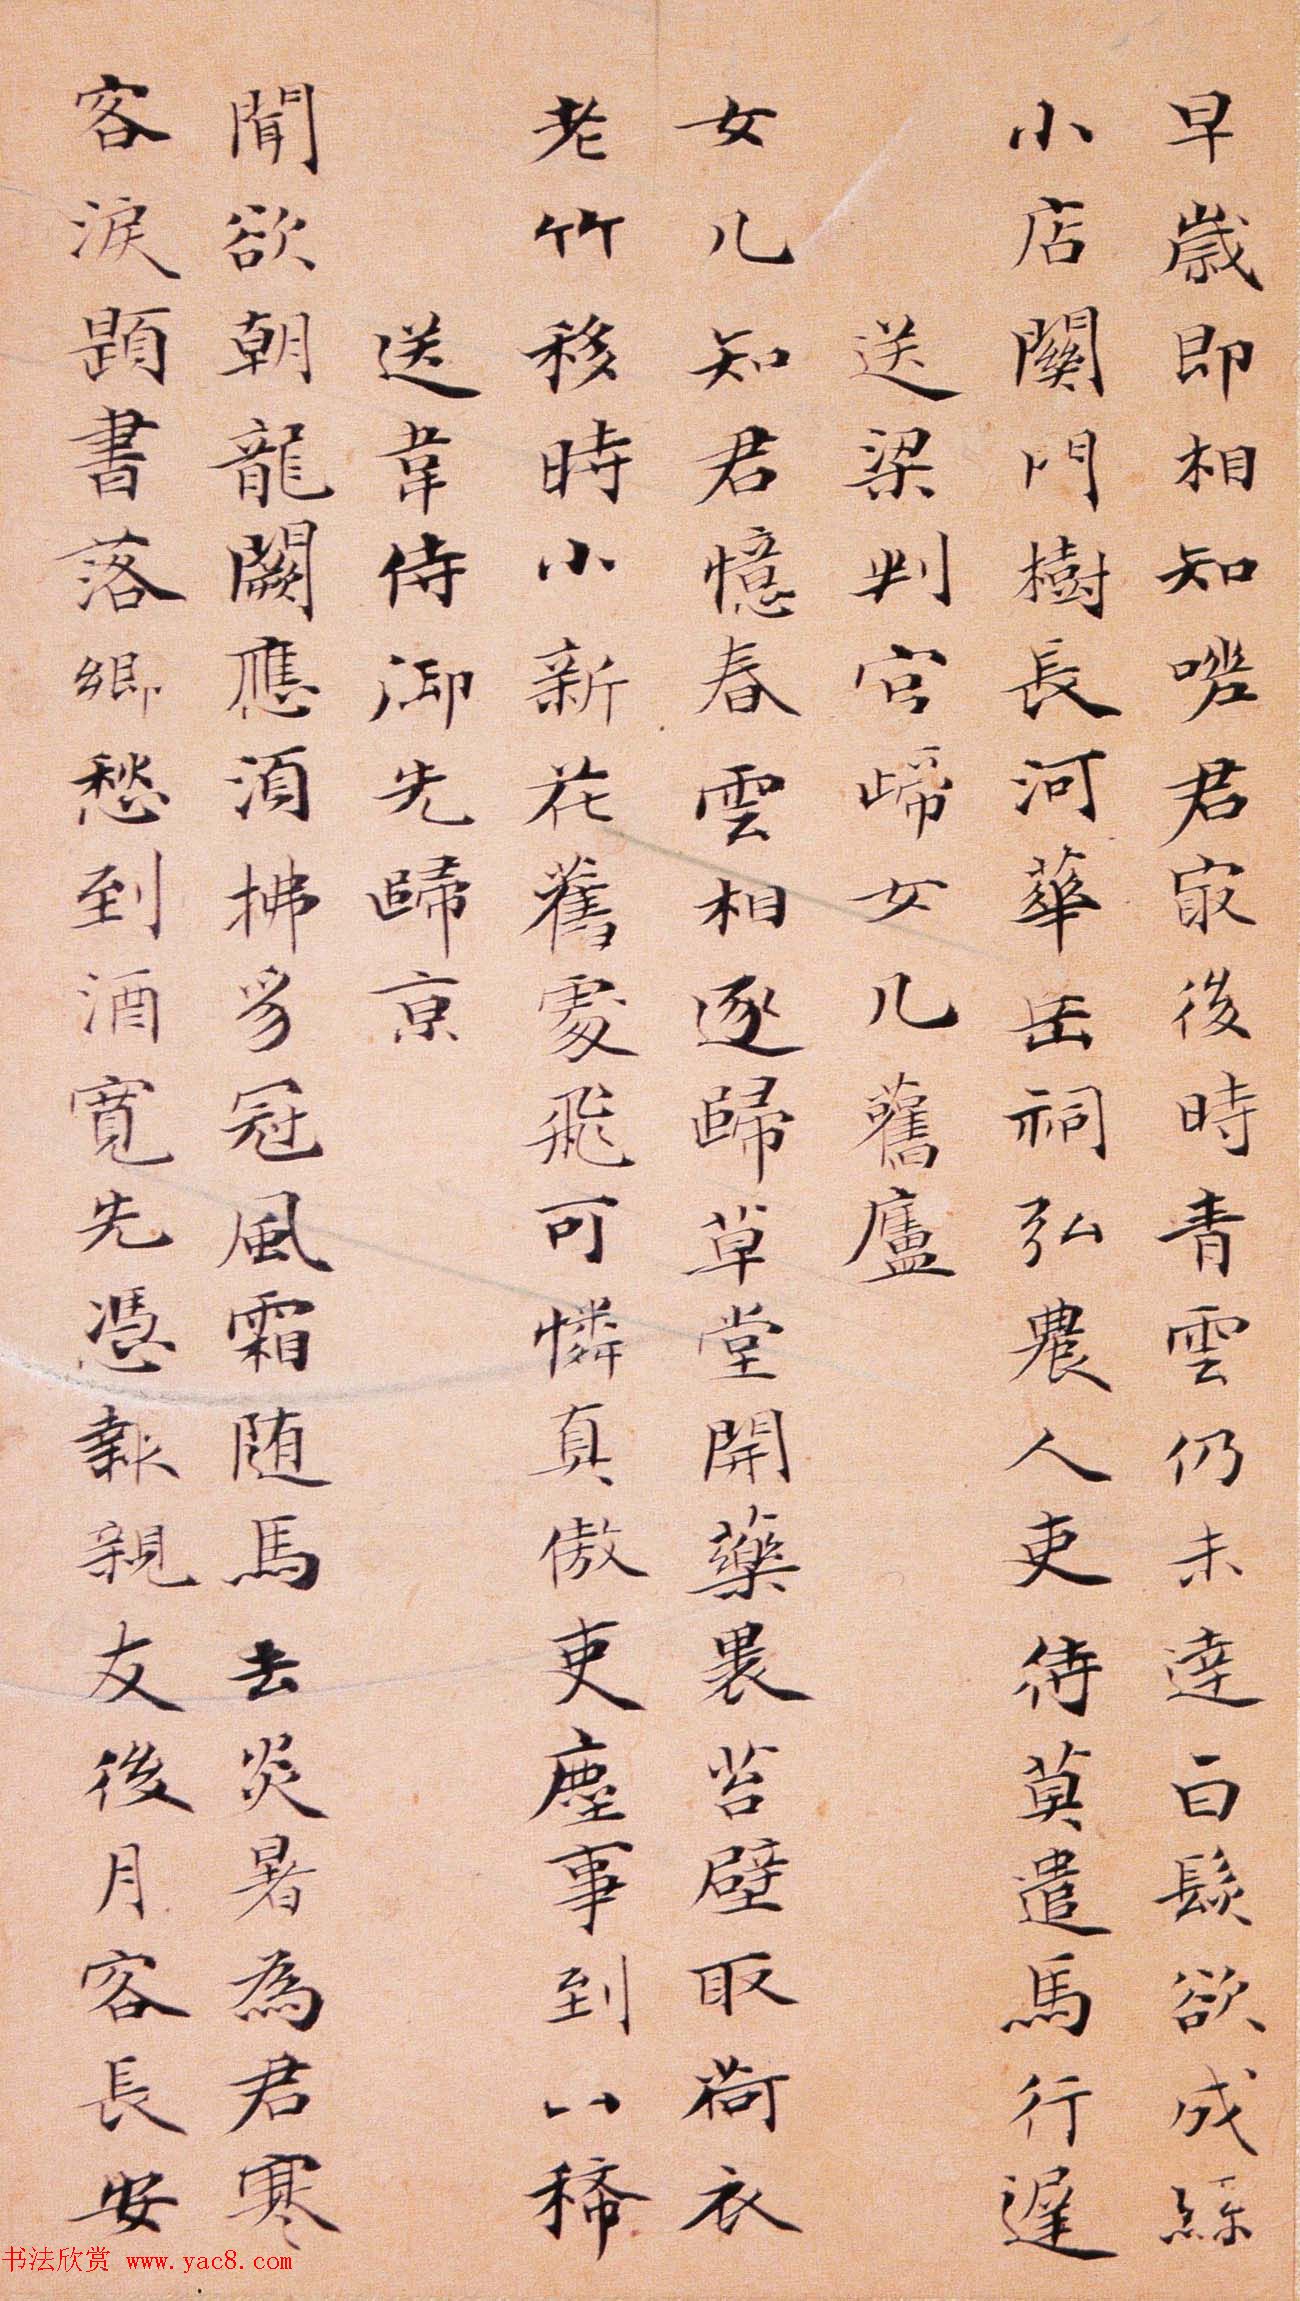 早歲即相知嗟君最後時青雲仍未達白髮欲成絲
小店關門樹長河華岳祠弘農人吏待莫遣馬行遲
送梁判官歸女几舊廬
女几知君憶春雲相逐歸草堂開藥裹苔壁取荷衣
老竹移時小新花舊處飛可憐真傲吏塵事到山稀
送韋侍御先歸京
聞欲朝龍闕應須拂豸冠風霜隨馬去炎暑為君寒
客淚題書落鄉愁到酒寬先憑報親友後月客長安
书法欣赏 www.yac8.com